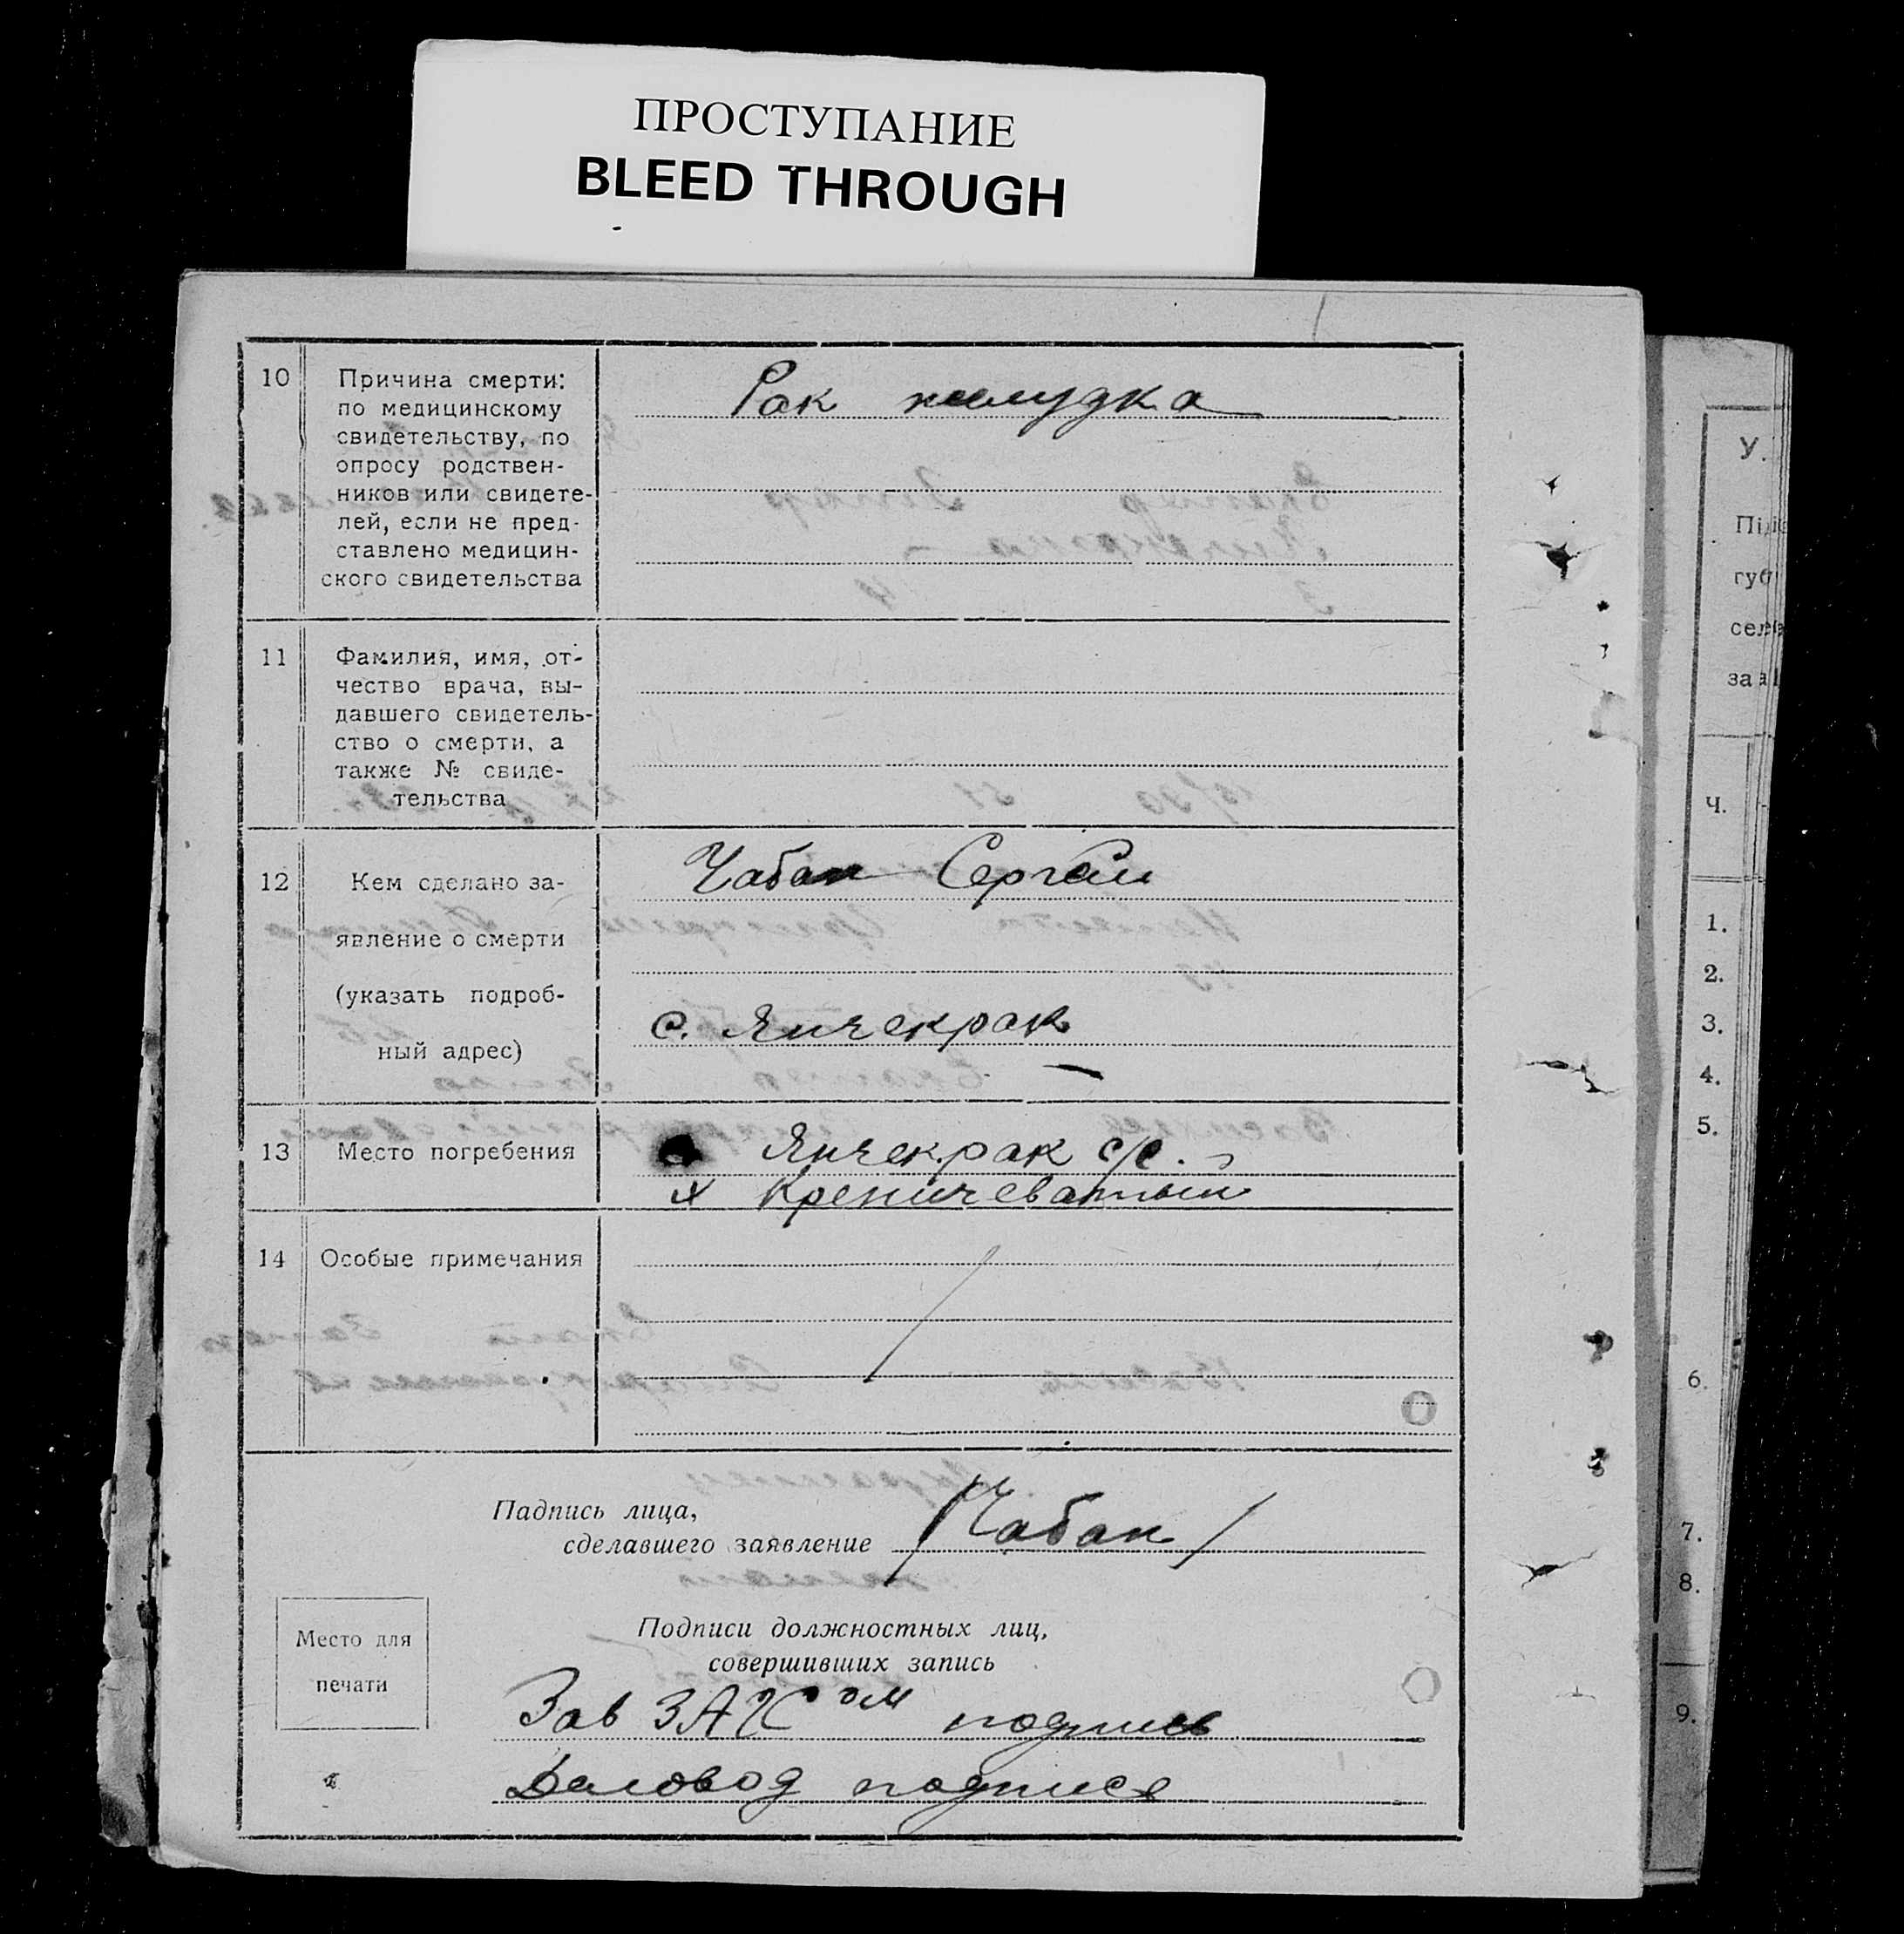 ПРОСТУПАНИЕ
BLEED THROUGH
10
Причина смерти:
по медицинскому
свидетельству, по
опросу родствен-
ников или свидете-
лей, если не пред-
ставлено медицин-
ского свидетельства
Рак желудка
11
Фамилия, имя, от-
чество врача, вы-
давшего свидетель-
ство о смерти, а
также № свиде-
тельства
12
Кем сделано за-
явление о смерти
(указать подроб-
ный адрес)
Чабан Сергей
с. Янчекрак
13
Место погребения
Янчекрак с/с.
х Креничеватый
14
Особые примечания
Падпись лица,
сделавшего заявление /Чабан/
Место для
печати
Подписи должностных лиц,
совершивших запись
Зав ЗАГСом подпись
Деловод подпись
У.
Пі
губ
сел
за
Ч.
1.
2.
3.
4.
5.
6.
7.
8.
9.